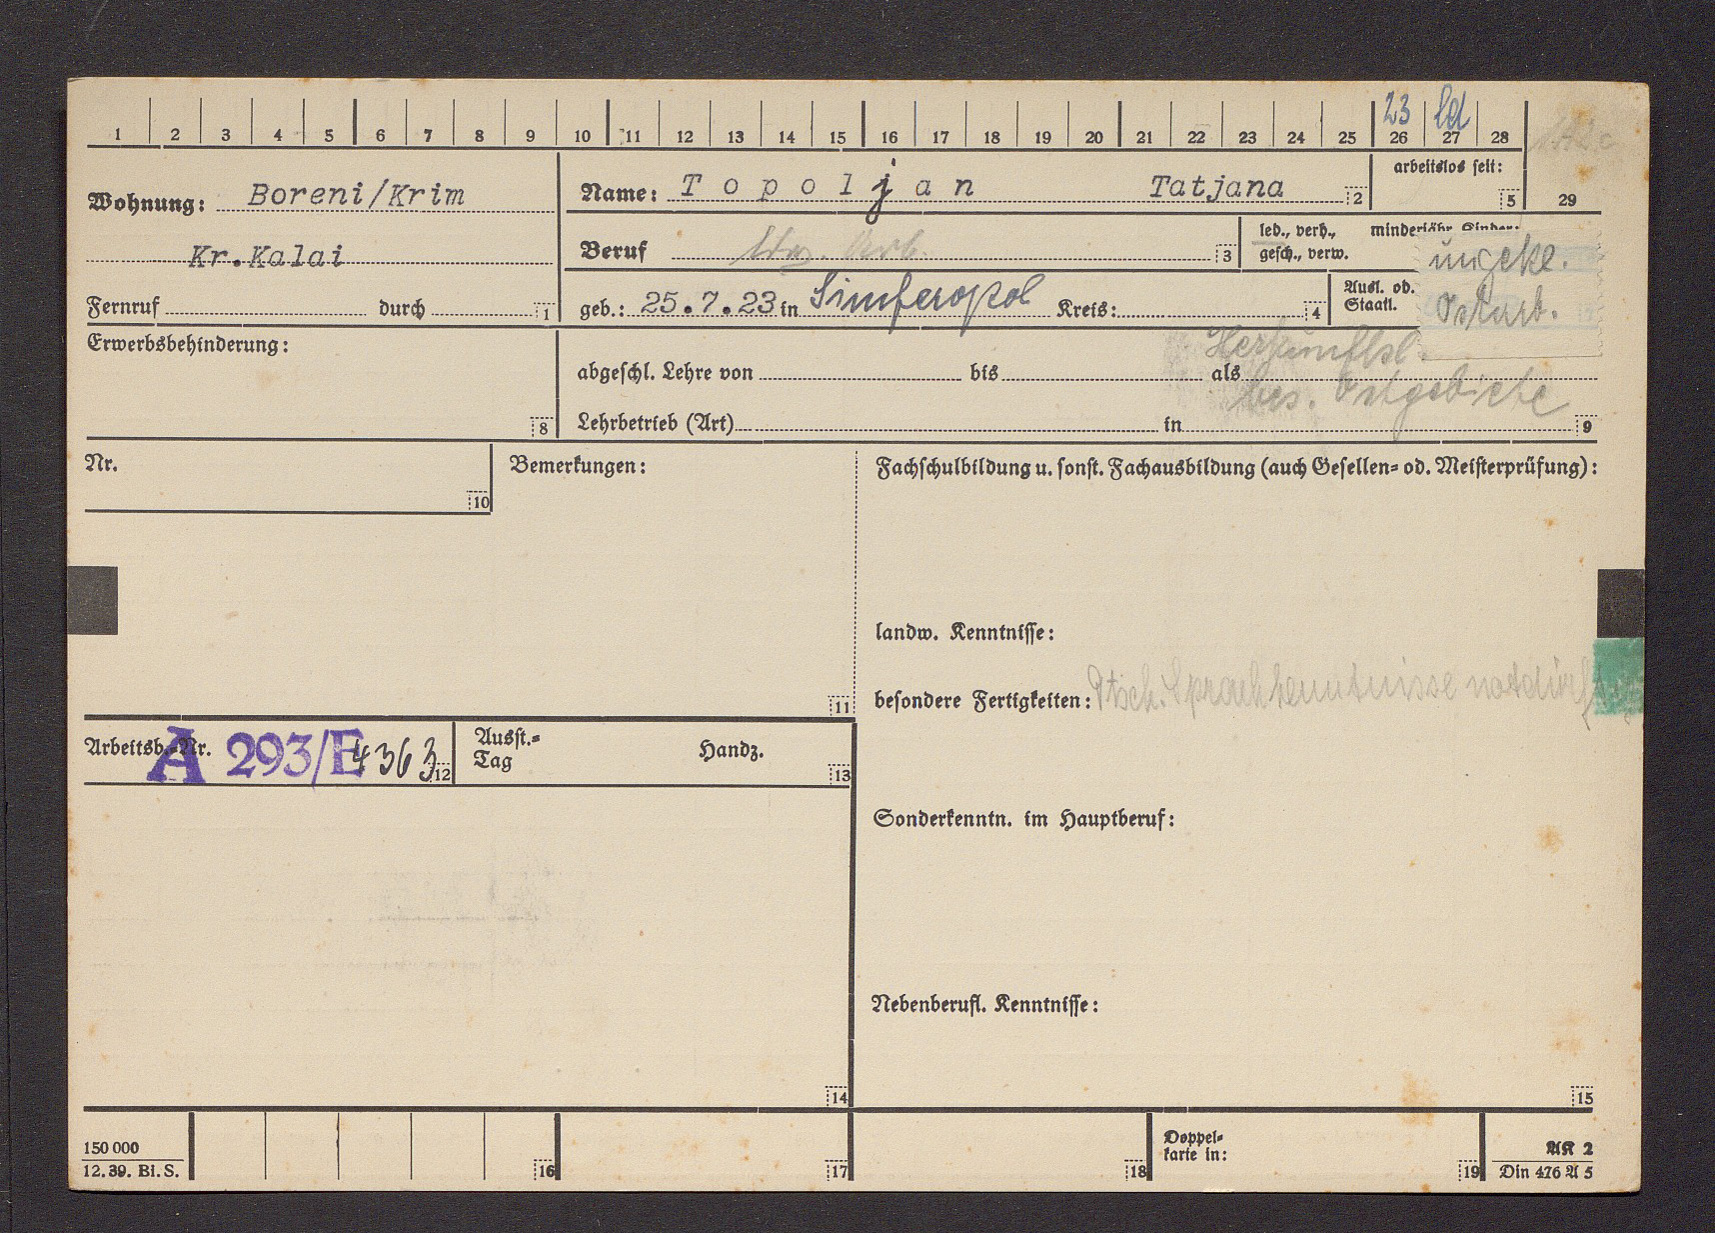 23 ld
1 2 3 4 5 6 7 8 9 10 11 12 13 14 15 16 17 18 19 20 21 22 23 24 25 26 27 28
arbeitslos seit:
5 29
Wohnung: Boreni/Krim
Kr.Kalai
Fernruf durch 1
Name: Topoljan Tatjana 2
Beruf ldw. Arb. 3
led., verh., gesch., verw.
minderjähr. Kinder:
geb.: 25.7.23 in Simferopol Kreis: 4
Ausl. od. Staatl.
ungekl.
Ostarb.
Erwerbsbehinderung:
8
Herkunftsl.
abgeschl. Lehre von bis als
bes. Ostgebiete
Lehrbetrieb (Art) in 9
Nr.
10
Bemerkungen:
11
Fachschulbildung u. sonst. Fachausbildung (auch Gesellen- od. Meisterprüfung):
landw. Kenntnisse:
besondere Fertigkeiten: Dtsch. Sprachkenntnisse
Arbeitsb.-Nr. A 293/E 4363 12
Ausst.-Tag Handz. 13
Sonderkenntn. im Hauptberuf:
Nebenberufl. Kenntnisse:
14
15
150 000
12. 39. Bl. S.
16 17 18
Doppel-
karte in: 19
AK 2
Din 476 A 5